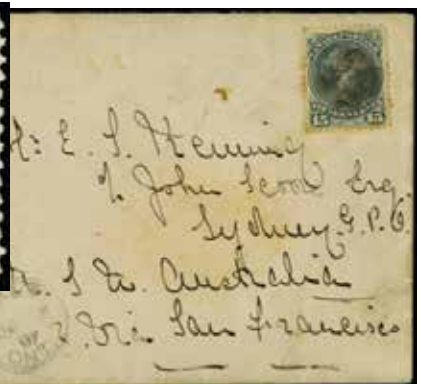 15 15
E. S. Fleming
c/o John Scott Esq.
Sydney G.P.O.
N. S. W. Australia
Via San Francisco
ONT